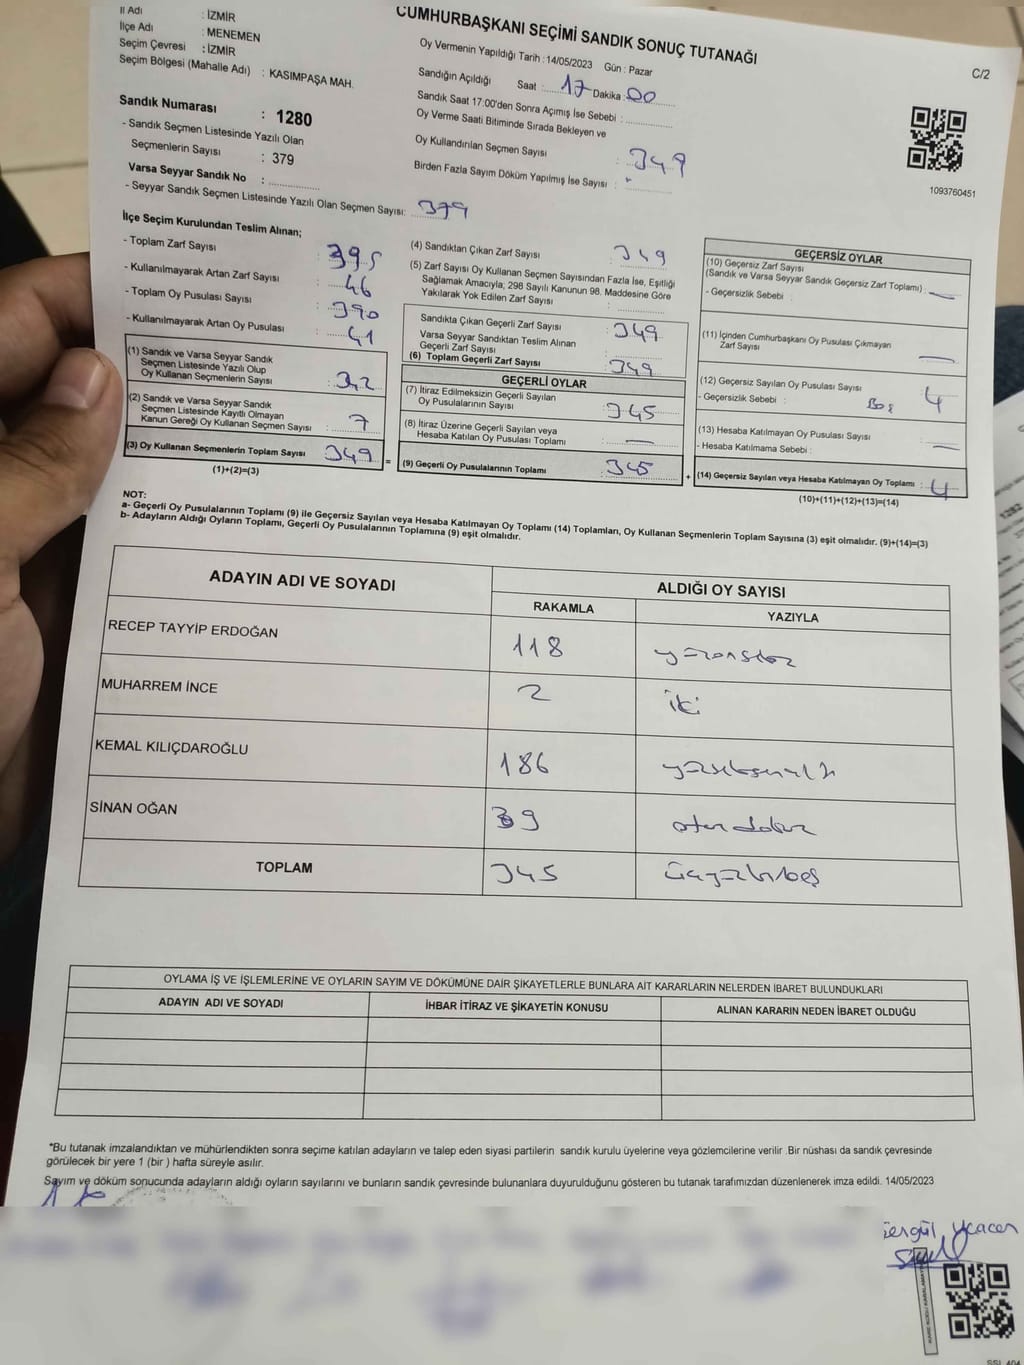 İl Adı : İZMİR
İlçe Adı : MENEMEN
Seçim Çevresi : İZMİR
Seçim Bölgesi (Mahalle Adı) : KASIMPAŞA MAH.
Sandık Numarası : 1280
- Sandık Seçmen Listesinde Yazılı Olan
Seçmenlerin Sayısı : 379
Varsa Seyyar Sandık No :
- Seyyar Sandık Seçmen Listesinde Yazılı Olan Seçmen Sayısı: 379
CUMHURBAŞKANI SEÇİMİ SANDIK SONUÇ TUTANAĞI
C/2
Oy Vermenin Yapıldığı Tarih : 14/05/2023 Gün : Pazar
Sandığın Açıldığı Saat : 17 Dakika : 00
Sandık Saat 17:00'den Sonra Açımış İse Sebebi :
Oy Verme Saati Bitiminde Sırada Bekleyen ve
Oy Kullandırılan Seçmen Sayısı : 349
Birden Fazla Sayım Döküm Yapılmış İse Sayısı :
1093760451
İlçe Seçim Kurulundan Teslim Alınan;
- Toplam Zarf Sayısı : 395
- Kullanılmayarak Artan Zarf Sayısı : 46
- Toplam Oy Pusulası Sayısı : 390
- Kullanılmayarak Artan Oy Pusulası : 41
(1) Sandık ve Varsa Seyyar Sandık
Seçmen Listesinde Yazılı Olup
Oy Kullanan Seçmenlerin Sayısı : 342
(2) Sandık ve Varsa Seyyar Sandık
Seçmen Listesinde Kayıtlı Olmayan
Kanun Gereği Oy Kullanan Seçmen Sayısı : 7
(3) Oy Kullanan Seçmenlerin Toplam Sayısı 349
(1)+(2)=(3)
=
(4) Sandıktan Çıkan Zarf Sayısı : 349
(5) Zarf Sayısı Oy Kullanan Seçmen Sayısından Fazla İse, Eşitliği
Sağlamak Amacıyla, 298 Sayılı Kanunun 98. Maddesine Göre
Yakılarak Yok Edilen Zarf Sayısı :
Sandıkta Çıkan Geçerli Zarf Sayısı : 349
Varsa Seyyar Sandıktan Teslim Alınan
Geçerli Zarf Sayısı :
(6) Toplam Geçerli Zarf Sayısı : 349
GEÇERLİ OYLAR
(7) İtiraz Edilmeksizin Geçerli Sayılan
Oy Pusulalarının Sayısı : 345
(8) İtiraz Üzerine Geçerli Sayılan veya
Hesaba Katılan Oy Pusulası Toplamı : —
(9) Geçerli Oy Pusulalarının Toplamı : 345
+
GEÇERSİZ OYLAR
(10) Geçersiz Zarf Sayısı
(Sandık ve Varsa Seyyar Sandık Geçersiz Zarf Toplamı) : —
- Geçersizlik Sebebi :
(11) İçinden Cumhurbaşkanı Oy Pusulası Çıkmayan
Zarf Sayısı : —
(12) Geçersiz Sayılan Oy Pusulası Sayısı : 4
- Geçersizlik Sebebi : Boş
(13) Hesaba Katılmayan Oy Pusulası Sayısı : —
- Hesaba Katılmama Sebebi :
(14) Geçersiz Sayılan veya Hesaba Katılmayan Oy Toplamı : 4
(10)+(11)+(12)+(13)=(14)
NOT:
a- Geçerli Oy Pusulalarının Toplamı (9) ile Geçersiz Sayılan veya Hesaba Katılmayan Oy Toplamı (14) Toplamları, Oy Kullanan Seçmenlerin Toplam Sayısına (3) eşit olmalıdır. (9)+(14)=(3)
b- Adayların Aldığı Oyların Toplamı, Geçerli Oy Pusulalarının Toplamına (9) eşit olmalıdır.
ADAYIN ADI VE SOYADI ALDIĞI OY SAYISI
RAKAMLA YAZIYLA
RECEP TAYYİP ERDOĞAN 118 yüzonsekiz
MUHARREM İNCE 2 iki
KEMAL KILIÇDAROĞLU 186 yüzseksenaltı
SİNAN OĞAN 39 otuz dokuz
TOPLAM 345 üçyüzkırkbeş
OYLAMA İŞ VE İŞLEMLERİNE VE OYLARIN SAYIM VE DÖKÜMÜNE DAİR ŞİKAYETLERLE BUNLARA AİT KARARLARIN NELERDEN İBARET BULUNDUKLARI
ADAYIN ADI VE SOYADI İHBAR İTİRAZ VE ŞİKAYETİN KONUSU ALINAN KARARIN NEDEN İBARET OLDUĞU
*Bu tutanak imzalandıktan ve mühürlendikten sonra seçime katılan adayların ve talep eden siyasi partilerin sandık kurulu üyelerine veya gözlemcilerine verilir .Bir nüshası da sandık çevresinde
görülecek bir yere 1 (bir ) hafta süreyle asılır.
Sayım ve döküm sonucunda adayların aldığı oyların sayılarını ve bunların sandık çevresinde bulunanlara duyurulduğunu gösteren bu tutanak tarafımızdan düzenlenerek imza edildi. 14/05/2023
1282